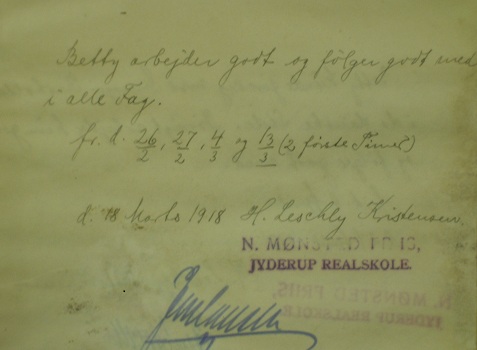 Betty arbejder godt og følger godt med
i alle Fag.
fr. d. 26/2, 27/2, 4/3 og 13/3 (2 første Timer)
d. 18 Marts 1918 H. Leschly Kristensen.
N. MØNSTED FRIIS,
JYDERUP REALSKOLE.